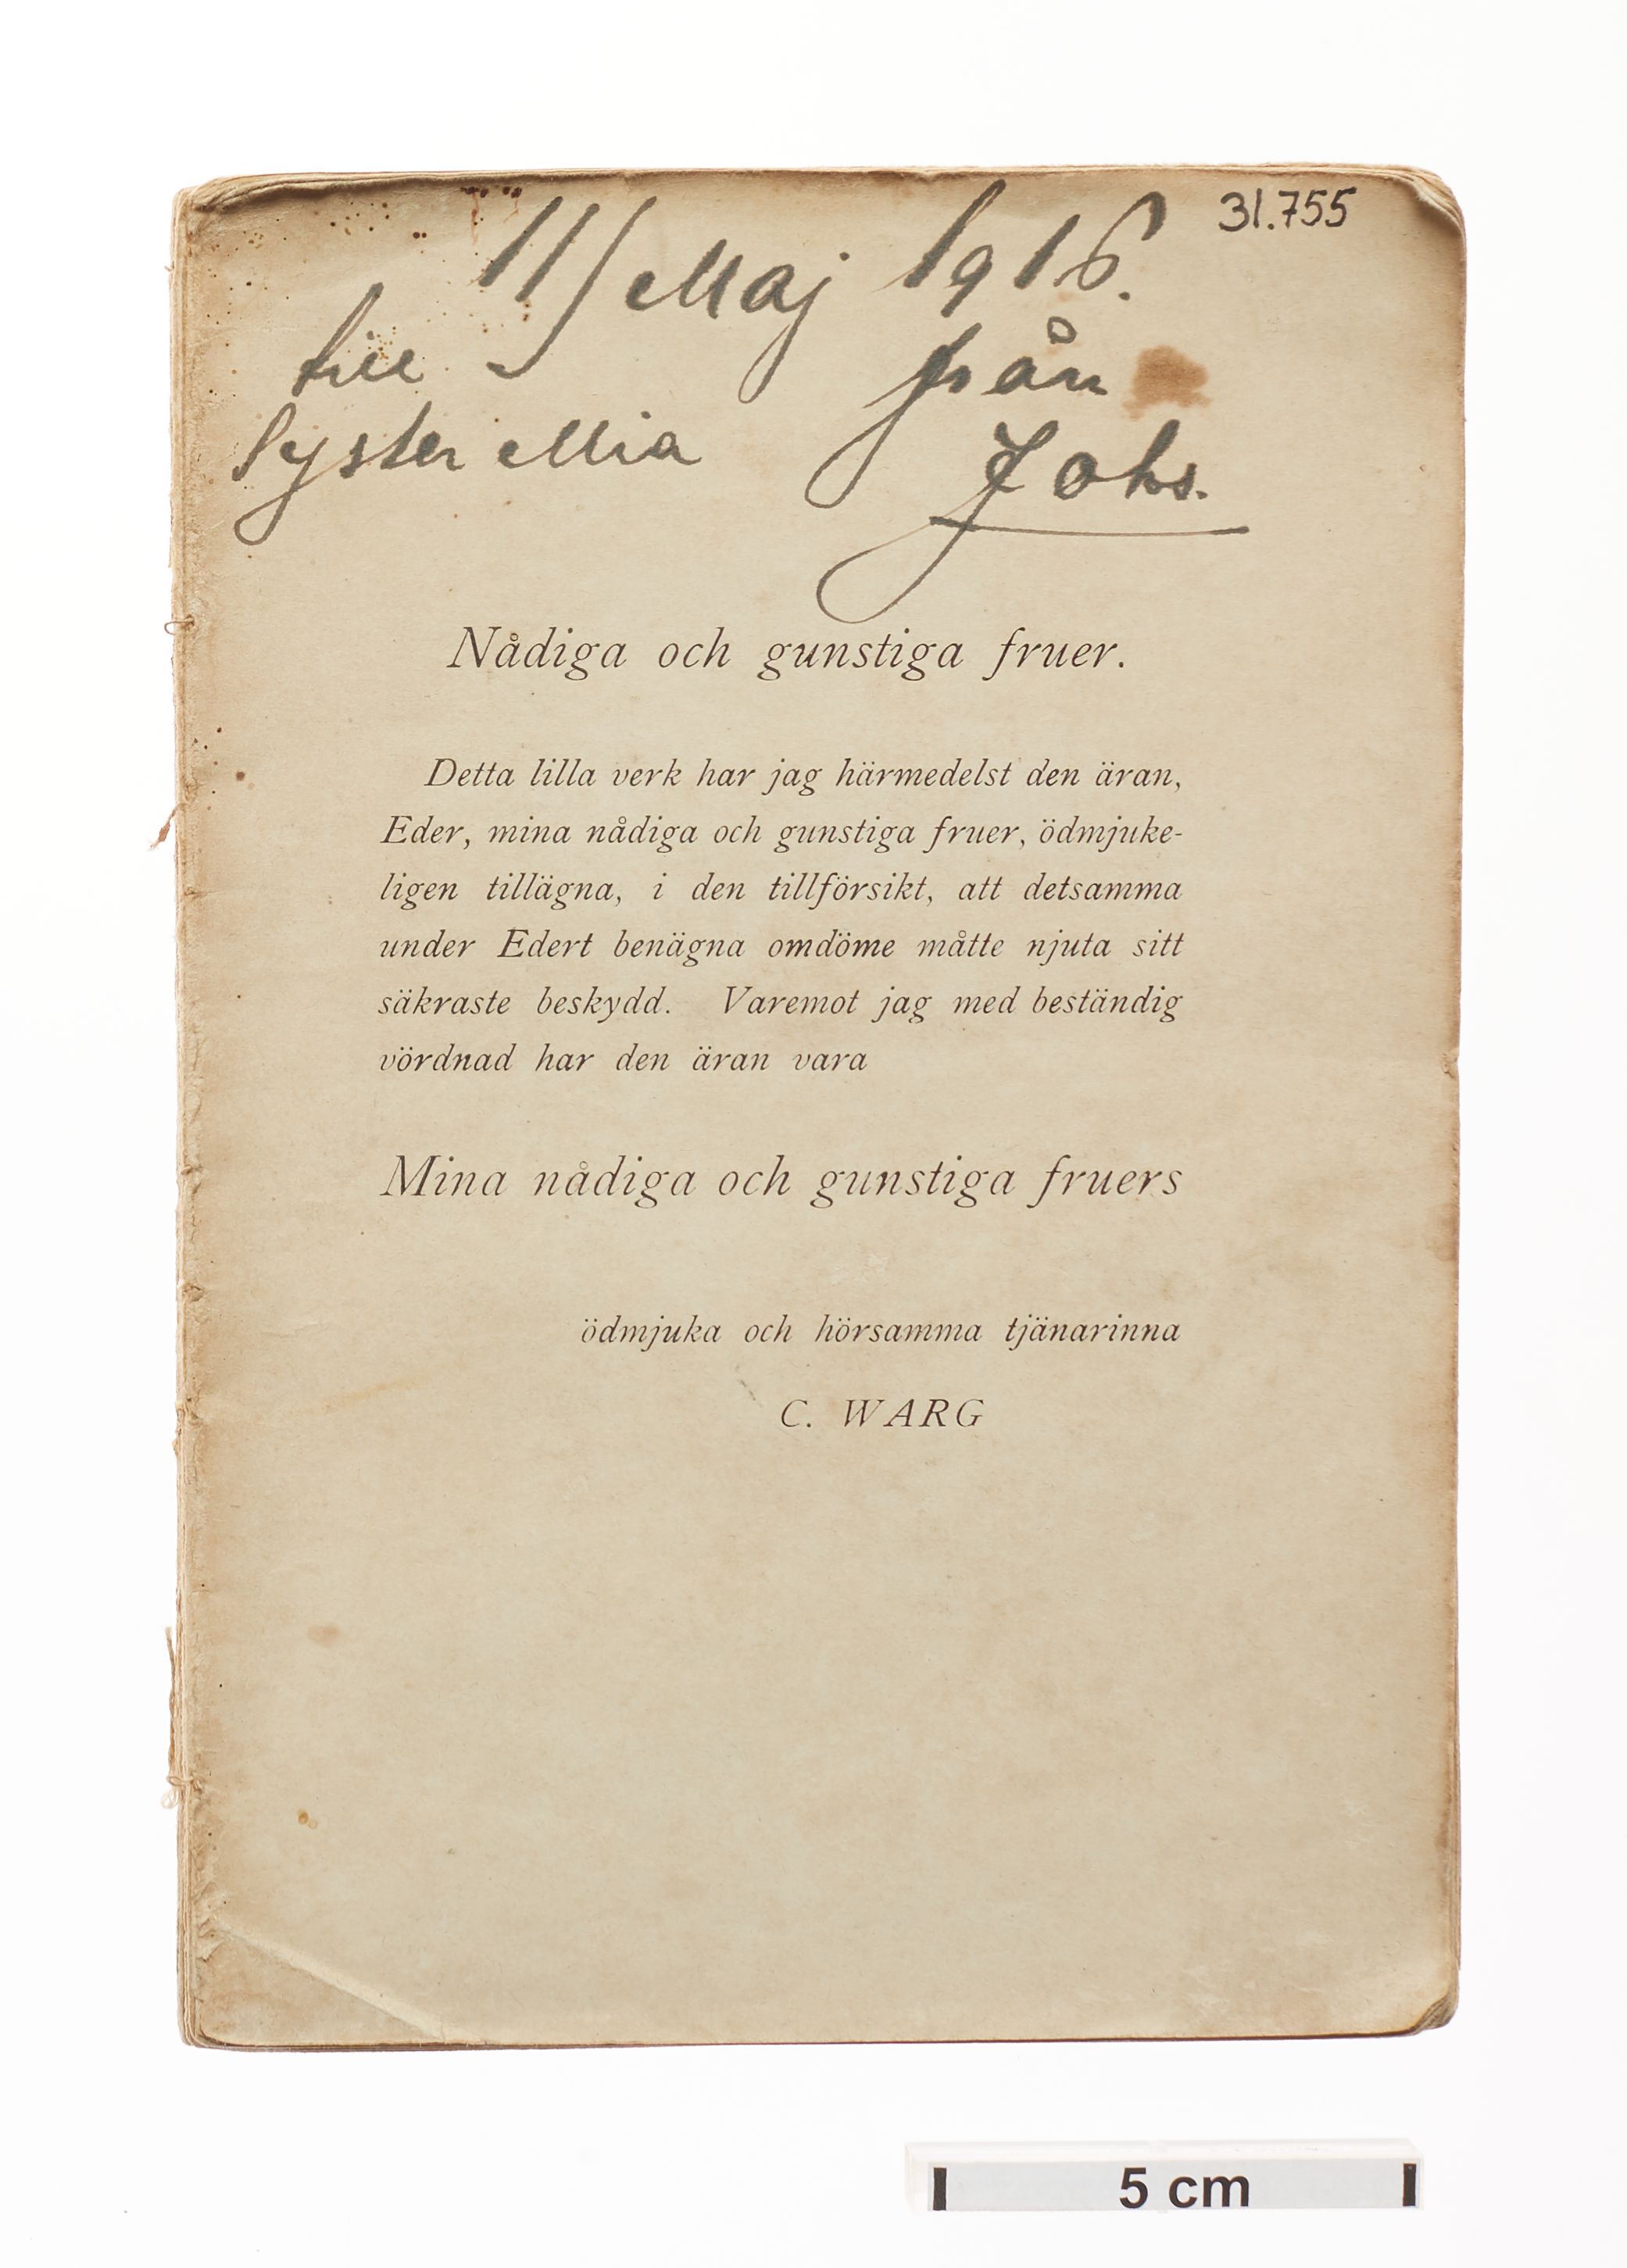 31.755
11/ Maj 1916.
till från
Syster Mia Johs.
Nådiga och gunstiga fruer.
Detta lilla verk har jag härmedelst den äran,
Eder, mina nådiga och gunstiga fruer, ödmjuke-
ligen tillägna, i den tillförsikt, att detsamma
under Edert benägna omdöme måtte njuta sitt
säkraste beskydd. Varemot jag med beständig
vördnad har den äran vara
Mina nådiga och gunstiga fruers
ödmjuka och hörsamma tjänarinna
C. WARG
5 cm